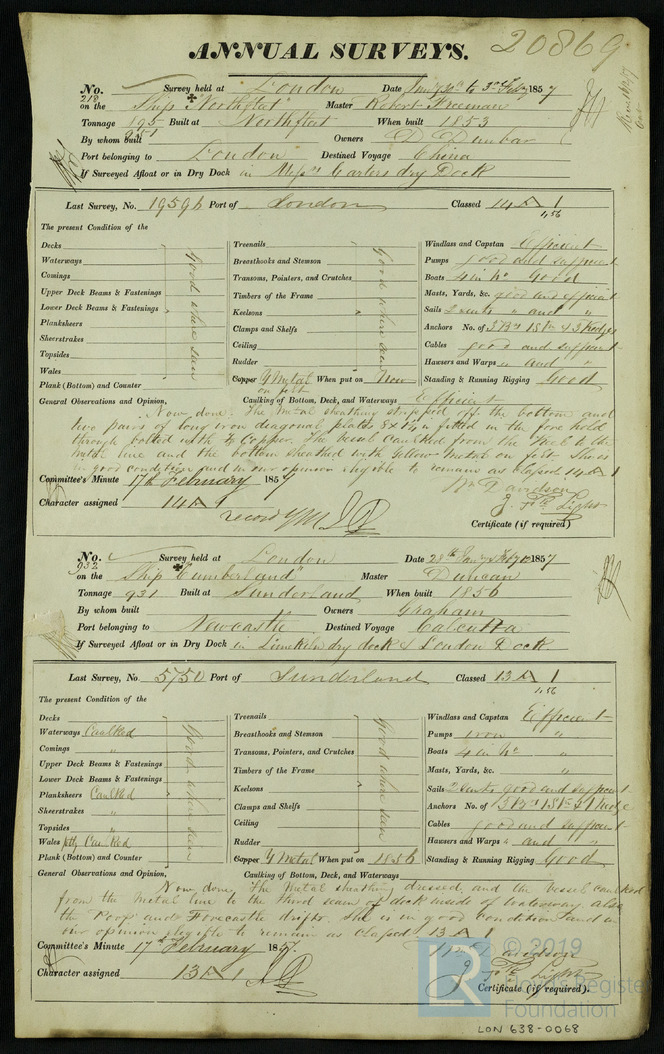 20869
ANNUAL SURVEYS.
No. 218 Survey held at London Date 1857
on the Ship "Northfleet" Master Robert Freeman
Tonnage 951 Built at Northfleet When built 1853
By whom built Owners D Dunbar
Port belonging to London Destined Voyage China
If Surveyed Afloat or in Dry Dock in dry Dock
Last Survey, No. 19596 Port of London Classed 14 A 1
4,56
The present Condition of the
Decks
Waterways
Comings
Upper Deck Beams & Fastenings
Lower Deck Beams & Fastenings
Planksheers
Sheerstrakes
Topsides
Wales
Plank (Bottom) and Counter
Good where seen
Treenails
Breasthooks and Stemson
Transoms, Pointers, and Crutches
Timbers of the Frame
Keelsons
Clamps and Shelfs
Ceiling
Rudder
Copper Y Metal on felt When put on New
Good where seen
Windlass and Capstan Efficient
Pumps good and sufficient
Boats 4 in No Good
Masts, Yards, &c. good and efficient
Sails 2 suits " and "
Anchors No. of 3 Brs 1 St & 3 Kedges
Cables good and sufficient
Hawsers and Warps " and "
Standing & Running Rigging Good
General Observations and Opinion, Caulking of Bottom, Deck, and Waterways Efficient
Now done. The Metal sheathing stripped off the bottom and
two pairs of long iron diagonal plates fitted in the fore hold
through bolted with Copper. The vessel caulked from the Keel to the
metal line and the bottom sheathed with Yellow metal on felt. She is
in good condition and in our opinion eligible to remain as classed 14 A 1
Committee's Minute 17th February 1857
Wm Davidson
Character assigned 14 A 1
J. Light
record YM
Certificate (if required)
No. 932 Survey held at London Date 1857
on the Ship "Cumberland" Master Duncan
Tonnage 931 Built at Sunderland When built 1856
By whom built Owners Graham
Port belonging to Newcastle Destined Voyage Calcutta
If Surveyed Afloat or in Dry Dock in Limekiln dry dock & London Dock.
Last Survey, No. 5750 Port of Sunderland Classed 13 A 1
4,56
The present Condition of the
Decks
Waterways Caulked
Comings "
Upper Deck Beams & Fastenings
Lower Deck Beams & Fastenings
Planksheers Caulked
Sheerstrakes "
Topsides "
Wales Caulked
Plank (Bottom) and Counter
Good where seen
Treenails
Breasthooks and Stemson
Transoms, Pointers, and Crutches
Timbers of the Frame
Keelsons
Clamps and Shelfs
Ceiling
Rudder
Copper Y Metal When put on 1856
Good where seen
Windlass and Capstan Efficient
Pumps iron "
Boats 4 in No "
Masts, Yards, &c. "
Sails 2 suits good and sufficient
Anchors No. of 3 Brs 1 St & 1 Kedge
Cables good and sufficient
Hawsers and Warps " and "
Standing & Running Rigging Good
General Observations and Opinion, Caulking of Bottom, Deck, and Waterways
Now done, The Metal sheathing dressed, and the vessel caulked
from the metal line to the third seam of deck inside of waterway also
the Poop and Forecastle drifts. She is in good condition and in
our opinion eligible to remain as classed, 13 A 1
Committee's Minute 17th February 1857.
Wm Davidson
Character assigned 13 A 1
J. Light
Certificate (if required).
LR
© 2019
Lloyd's Register
Foundation
LON 638-0068